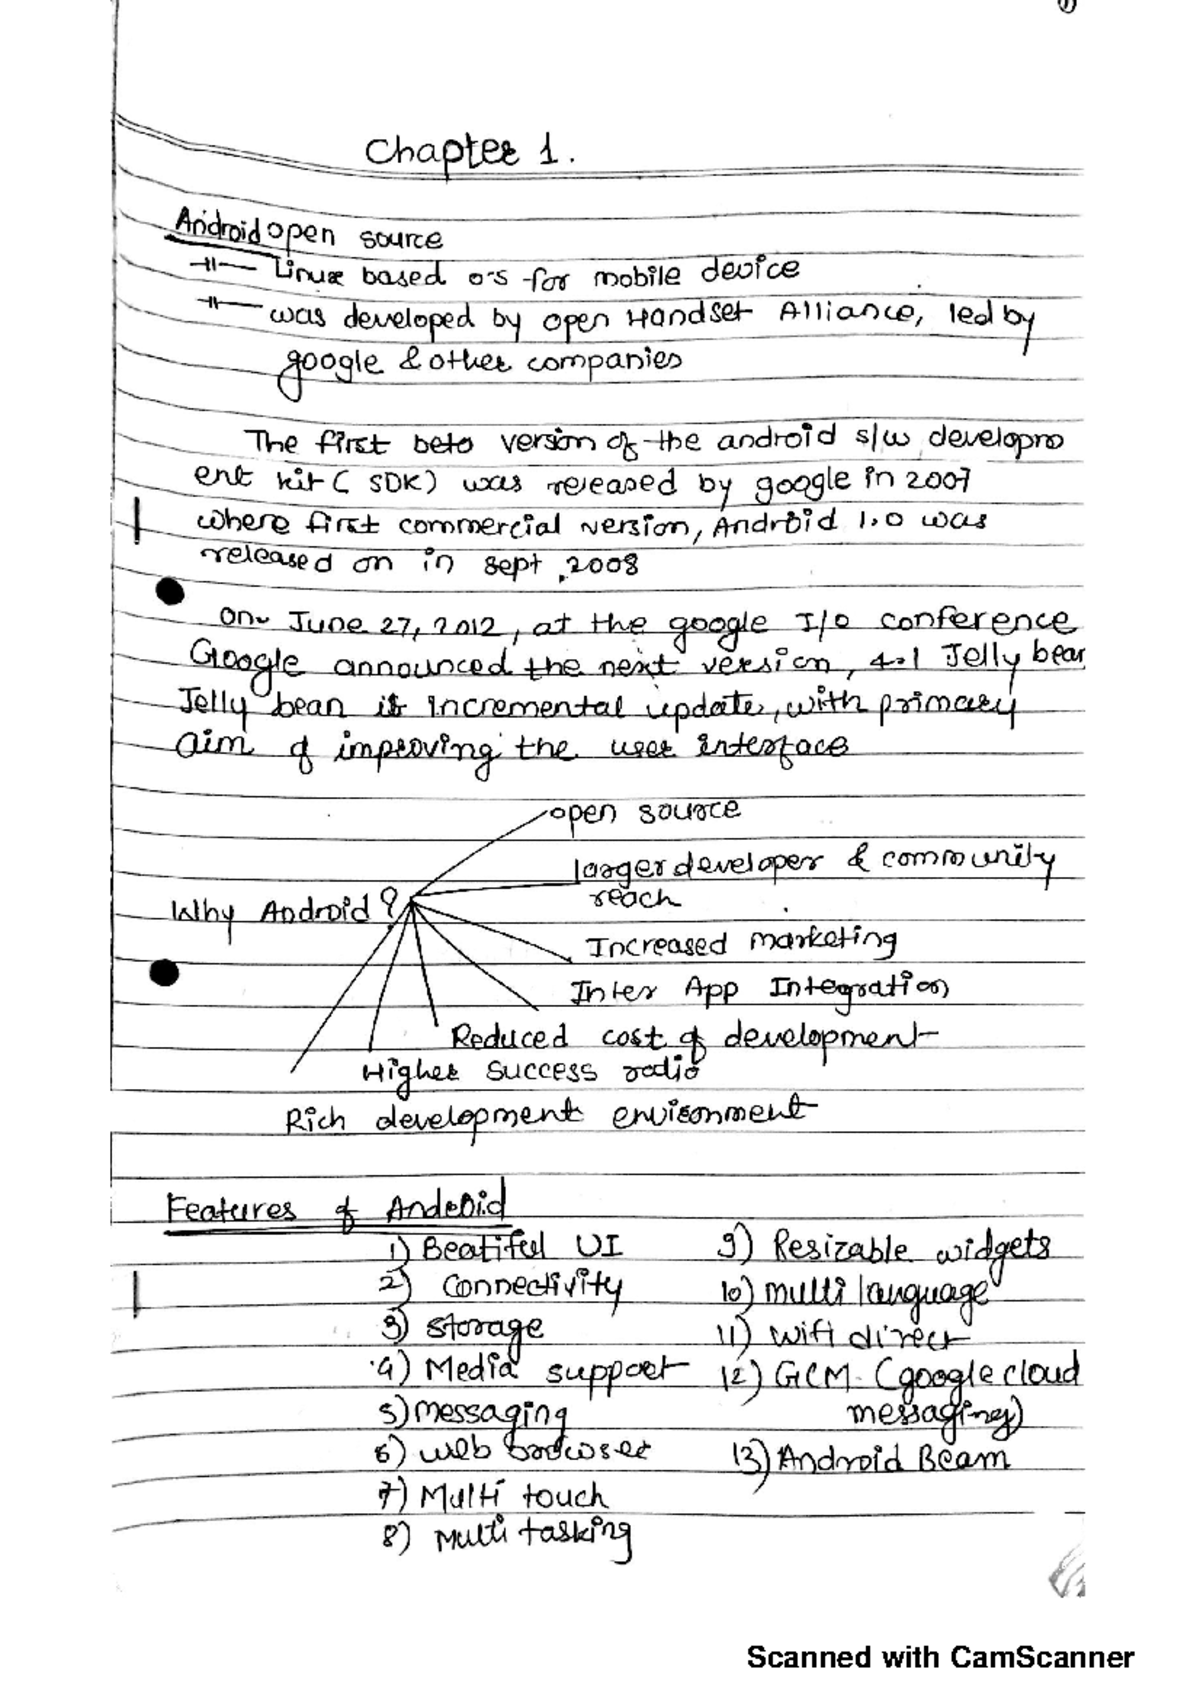 1
Chapter 1.
Android open source
-||- Linux based o.s for mobile device
-||- was developed by open Handset Alliance, led by
google & other companies
The first beta version of the android s/w developm
ent kit ( SDK) was released by google in 2007
where first commercial version, Android 1.0 was
released on in sept ,2008
On June 27, 2012, at the google I/O conference
Google announced the next version, 4.1 Jelly bean
Jelly bean is incremental update, with primary
aim of improving the user interface
open source
larger developer & community
reach
Why Android?
Increased marketing
Inter App Integration
Reduced cost of development
Higher success ratio
Rich development environment
Features of Android
1) Beatiful UI
2) Connectivity
3) storage
4) Media support
5) messaging
6) web browser
7) Multi touch
8) Multi tasking
9) Resizable widgets
10) multi language
11) wifi direct
12) GCM. (google cloud
messaging)
13) Android Beam
Scanned with CamScanner